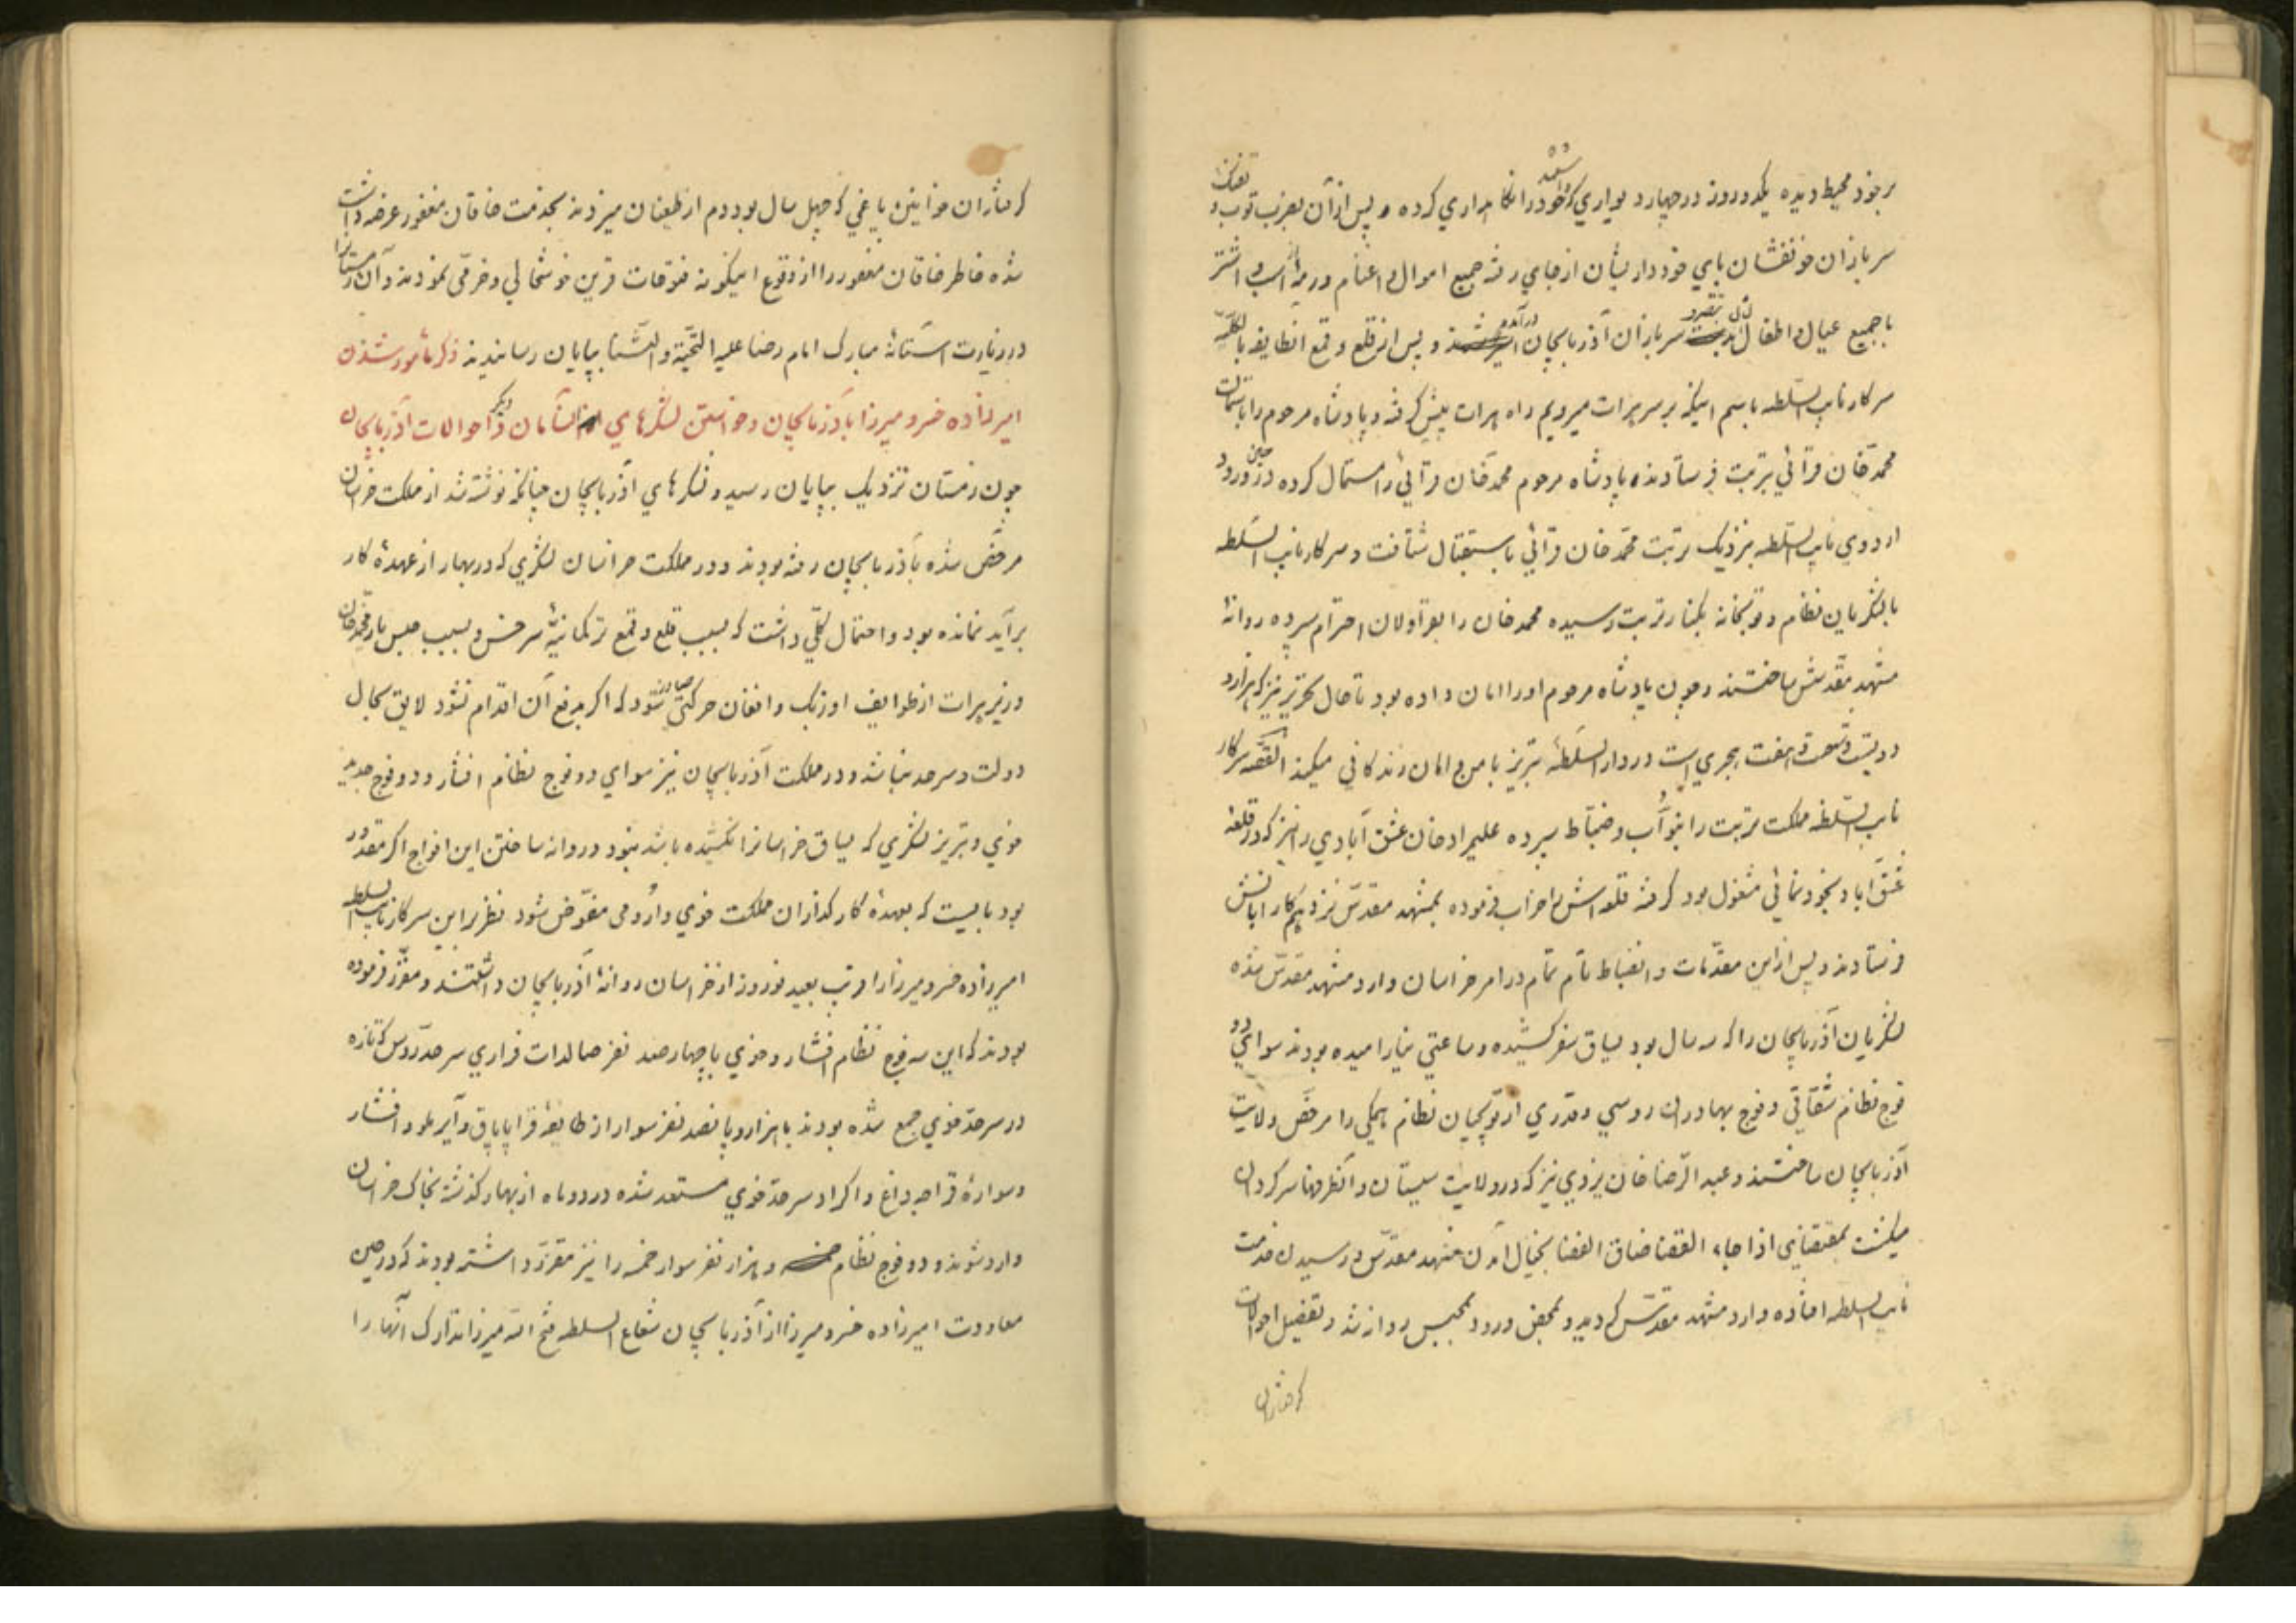 برخود محیط دیده یکدو روز در چهار دیواری که داشتند خود را نکاهداری کرده و پس از آن بضرب توپ و تفنک
سربازان خونفشان پای خودداریشان از جای رفته جمیع اموال و اغنام و رمه و اسب و اشتر
با جمیع عیال و اطفال سربازان آذربایجان درآمده و پس از قلع و قمع انطایفه بالکلیه
سرکار نایب السلطه باسم اینکه بر سر هرات میرویم راه هرات پیش کرفته و پادشاه مرحوم را باستمالت
محمد خان قرائی بتربت فرستادند پادشاه مرحوم محمد خان قرائی را استمال کرده در حین ورود
اردوی نایب السلطه بنزدیک تربت محمد خان قرائی باستقبال شتافت و سرکار نایب السلطه
با لشکریان نظام و توپخانه بکنار تربت رسیده محمد خان را بقراولان احترام سپرده روانهٔ
مشهد مقدسش ساختند و چون پادشاه مرحوم او را امان داده بود تا حال تحریر نیز که هزار و
دویست و شصت و هفت هجری است در دار السلطهٔ تبریز با من و امان زندکانی میکند القصه سرکار
نایب السلطه مملکت تربت را بنواب و ضباط سپرده علیمراد خان عشق آبادی را نیز که در قلعه
عشق آباد بخودنمائی مشغول بود کرفته قلعه اش را خراب فرموده بمشهد مقدس نزد
فرستادند و پس از این مقدمات و انضباط تام تمام در امر خراسان وارد مشهد مقدس شده
لشکریان آذربایجان را که سه سال بود یساق سفر کشیده و ساعتی نیارامیده بودند سوای دو
فوج نظام شقاقی و فوج بهادران روسی و قدری از توپچیان نظام همکی را مرخص ولایت
آذربایجان ساختند و عبد الرضا خان یزدی نیز که در ولایت سیستان و آنطرفها سرکردان
میکشت بمقتضای اذا جاء القضا ضاق الفضا بخیال آمدن مشهد مقدس و رسیدن خدمت
نایب السلطه افتاده وارد مشهد مقدس کردید و بمحض ورود بمحبس روانه شد و تفصیل احوالات
کرفتاران
کرفتاران خوانین یاغی که چهل سال بود دم از طغیان میزدند بخدمت خاقان مغفور عرضه داشت
شده خاطر خاقان مغفور را از وقوع اینکونه فتوقات قرین خوشحالی و خرمی نمودند و آن زمستانرا
در زیارت استانهٔ مبارک امام رضا علیه التحیة و الثنا بپایان رسانیدند ذکر مامور شدن
امیرزاده خسرو میرزا باذربایجان و خواستن لشکرهای از انسامان و ذکر احوالات آذربایجان
چون زمستان نزدیک بپایان رسید و لشکرهای آذربایجان چنانکه نوشته شد از مملکت خراسان
مرخص شده بآذربایجان رفته بودند و در مملکت خراسان لشکری که در بهار از عهدهٔ کار
برآید نمانده بود و احتمال کلی داشت که بسبب قلع و قمع ترکمانیهٔ سرخس و بسبب حبس یار محمد خان
وزیر هرات از طوایف اوزبک و افغان حرکتی صادر شود که اکر بدفع آن اقدام نشود لایق بحال
دولت و سرحد نباشد و در مملکت آذربایجان نیز سوای دو فوج نظام افشار و دو فوج جدید
خوی و تبریز لشکری که یساق خراسانرا نکشیده باشد نبود و روانه ساختن این افواج اکر مقدور
بود بایست که بعهدهٔ کارکذاران مملکت خوی و ارومی مفوض شود نظر براین سرکار نایب السلطه
امیرزاده خسرو میرزا را قریب بعید نوروز از خراسان روانهٔ آذربایجان داشتند و مقرر فرموده
بودند که این سه فوج نظام افشار و خوی با چهار صد نفر صالدات فراری سرحد روس که تازه
در سرحد خوی جمع شده بودند با هزار و پانصد نفر سوار از طایفهٔ قراپاپاق و آیرملو و افشار
و سوارهٔ قراجه داغ و اکراد سرحد خوی مستعد شده در دو ماه از بهار کذشته بخاک خراسان
وارد شوند و دو فوج نظام خمسه و هزار نفر سوار خمسه را نیز مقرر داشته بودند که در حین
معاودت امیرزاده خسرو میرزا از آذربایجان شعاع السلطه فتح الله میرزا تدارک آنها را